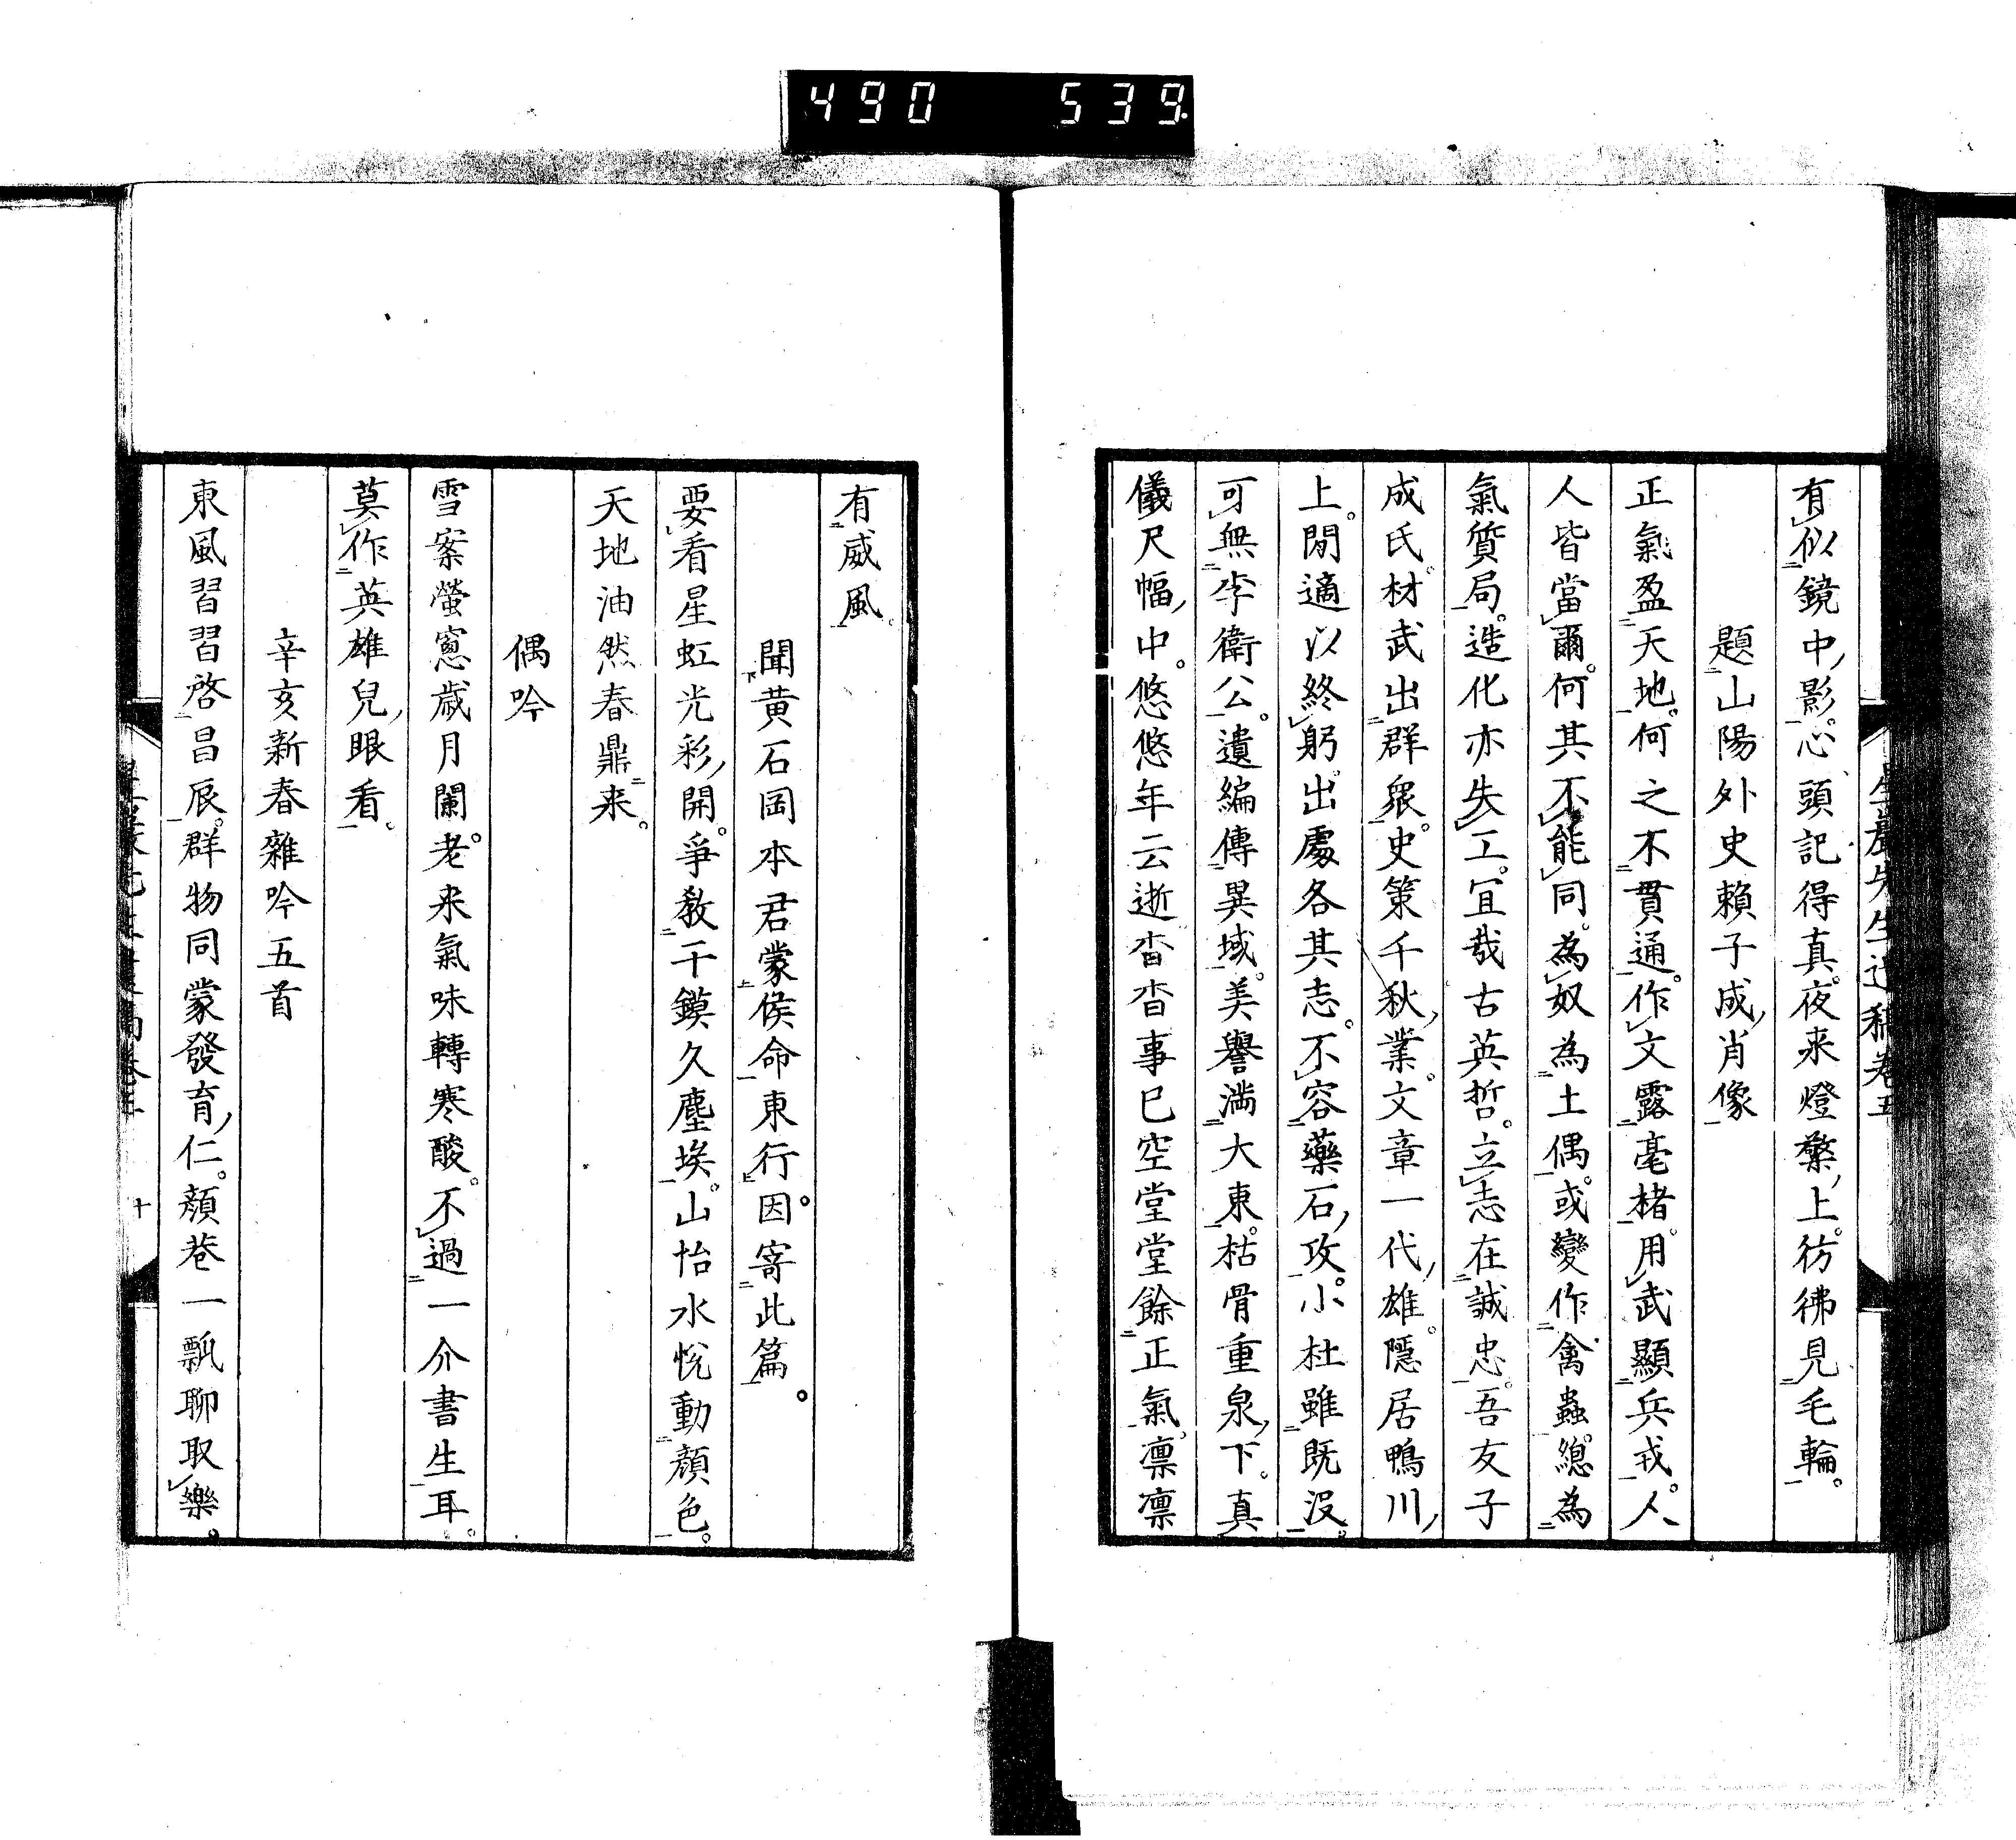 490 539
有似鏡中影。心頭記得真。夜来燈檠上。彷彿見毛輪。
題山陽外史賴子成肖像
正氣盈天地。何之不貫通。作文露毫楮。用武顯兵戎。人
人皆當爾。何其不能同。為奴為土偶。或變作禽蟲。總為
氣質局。造化亦失工。宜哉古英哲。立志在誠忠。吾友子
成氏。材武出群衆。史策千秋業。文章一代雄。隱居鴨川
上。閒適以終躬。出處各其志。不容藥石攻。小杜雖既沒。
可無李衛公。遺編傳異域。美譽満大東。枯骨重泉下。真
儀尺幅中。悠悠年云逝。沓沓事已空。堂堂餘正氣。凛凛
有威風。
聞黄石岡本君蒙侯命東行。因寄此篇。
要看星虹光彩開。爭教干鏌久塵埃。山怡水悅動顔色。
天地油然春鼎来。
偶吟
雪案螢窻歳月闌。老来氣味轉寒酸。不過一介書生耳。
莫作英雄兒眼看。
辛亥新春雜吟五首
東風習習啓昌辰。群物同蒙發育仁。顔巷一瓢聊取樂。
十